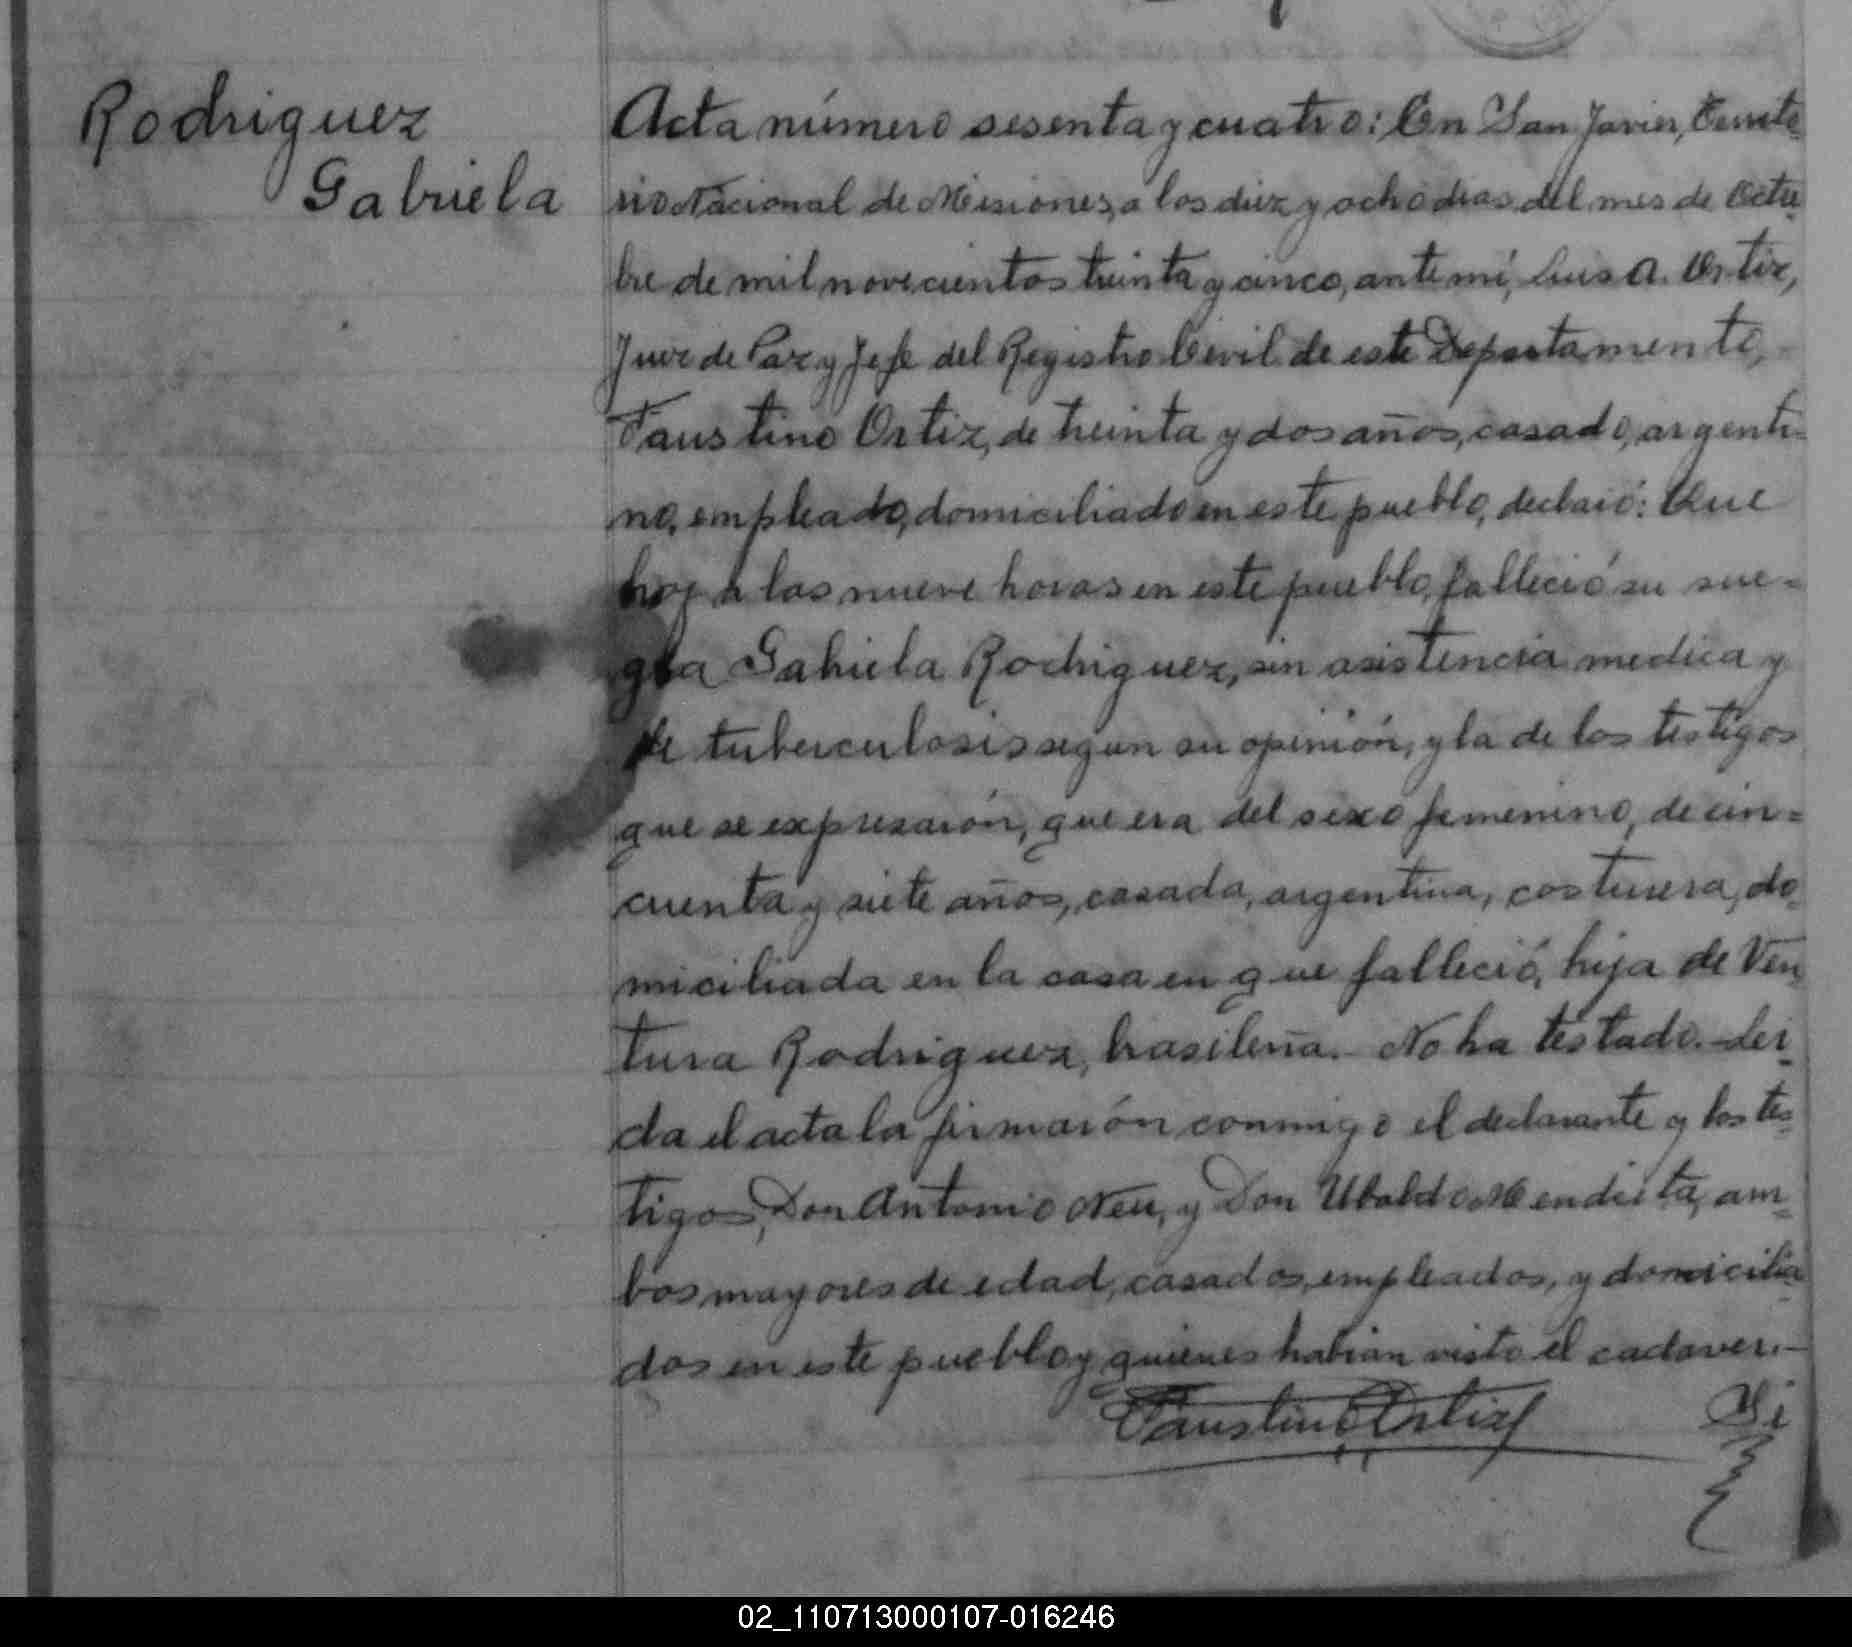 Rodriguez
Gabriela
Acta número sesenta y cuatro: En San Javier, Territo-
rio Nacional de Misiones, a los diez y ocho dias del mes de Octu-
bre de mil novecientos treinta y cinco, ante mí, Luis A. Ortiz,
Juez de Paz y Jefe del Registro Civil de este Departamento,
Faustino Ortiz, de treinta y dos años, casado, argenti-
no, empleado, domiciliado en este pueblo, declaró: Que
hoy a las nueve horas en este pueblo, falleció su sue-
gra Gabriela Rodriguez, sin asistencia medica y
de tuberculosis segun su opinión, y la de los testigos
que se expresarón, que era del sexo femenino, de cin-
cuenta y siete años, casada, argentina, costurera, do-
miciliada en la casa en que falleció, hija de Ven-
tura Rodriguez, brasileña.- No ha testado.- Lei-
da el acta la firmarón conmigo el declarante y los tes-
tigos, Don Antonio Neu, y Don Ubaldo Mendieta, am-
bos mayores de edad, casados, empleados, y domicilia-
dos en este pueblo y quienes habian visto el cadaver.-
Faustino Ortiz
02_110713000107-016246